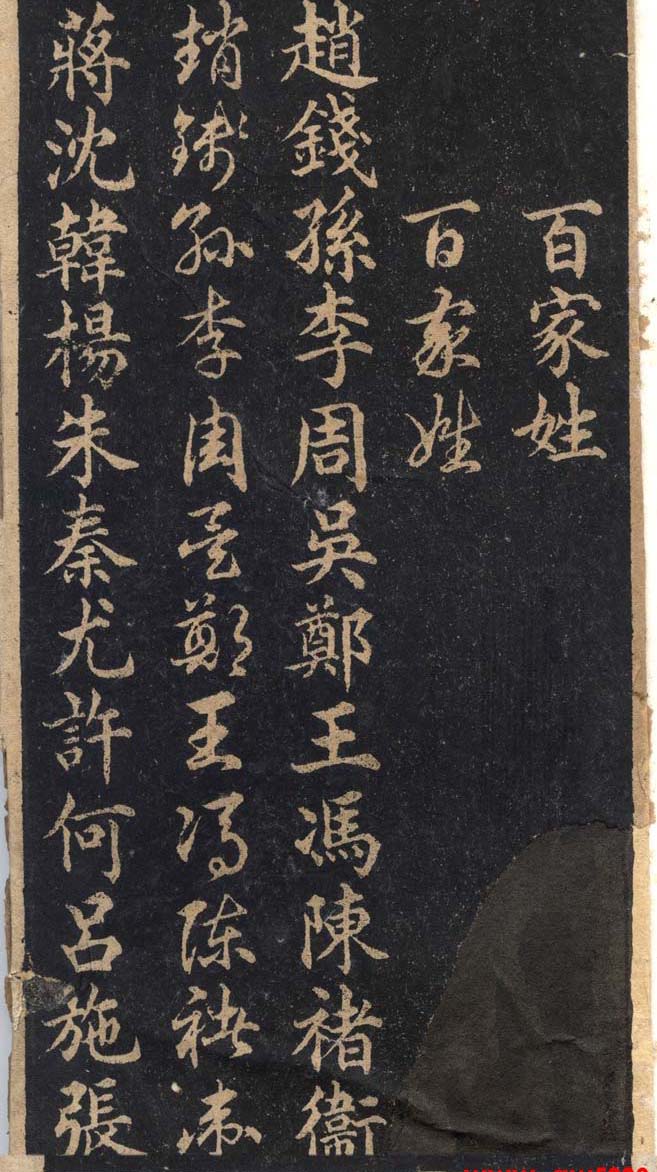 百家姓
百家姓
趙錢孫李周吳鄭王馮陳褚衞
趙錢孫李周吳鄭王馮陳褚衞
蔣沈韓楊朱秦尤許何呂施張